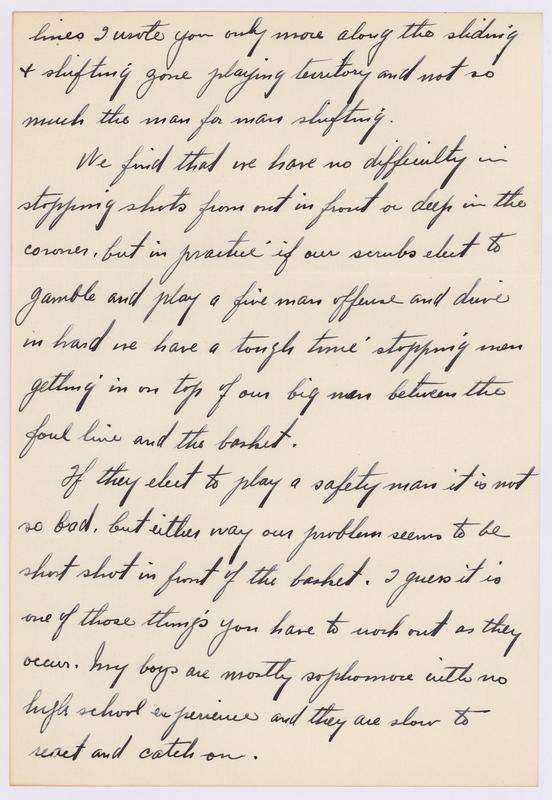 lines I wrote you only more along the sliding
& shifting zone playing territory and not so
much the man for man shifting.
We find that we have no difficulty in
stopping shots from out in front or deep in the
corner, but in practice if our scrubs elect to
gamble and play a five man offense and drive
in hard we have a tough time stopping men
getting in on top of our big men between the
foul line and the basket.
If they elect to play a safety man it is not
so bad, but either way our problem seems to be
short shot in front of the basket. I guess it is
one of those things you have to work out as they
occur. My boys are mostly sophomore with no
high school experience and they are slow to
react and catch on.